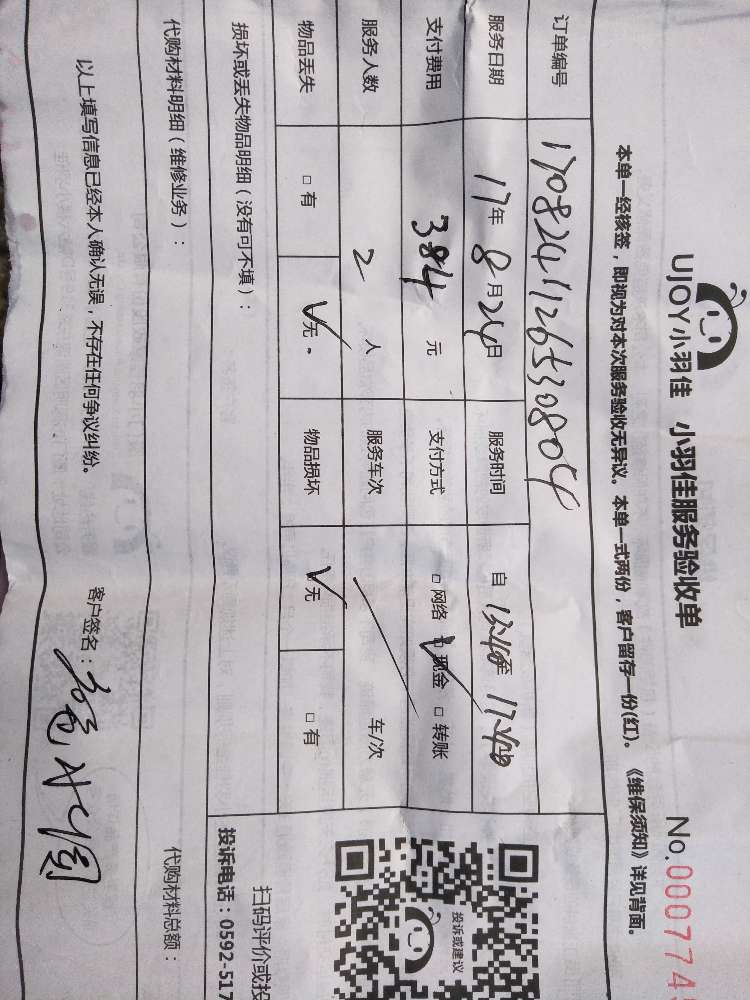 UJOY小羽佳 小羽佳服务验收单 No.000774
本单一经核签，即视为对本次服务验收无异议。本单一式两份，客户留存一份(红)。《维保须知》详见背面。
订单编号 1708241126530804
服务日期 17年8月24日 服务时间 自13:40至17:40
支付费用 384元 支付方式 □网络 ☑现金 □转账
服务人数 2人 服务车次 车/次
物品丢失 □有 ☑无 物品损坏 ☑无 □有
损坏或丢失物品明细（没有可不填）：
代购材料明细（维修业务）： 代购材料总额：
以上填写信息已经本人确认无误，不存在任何争议纠纷。 客户签名：
投诉或建议
扫码评价或投
投诉电话：0592-517